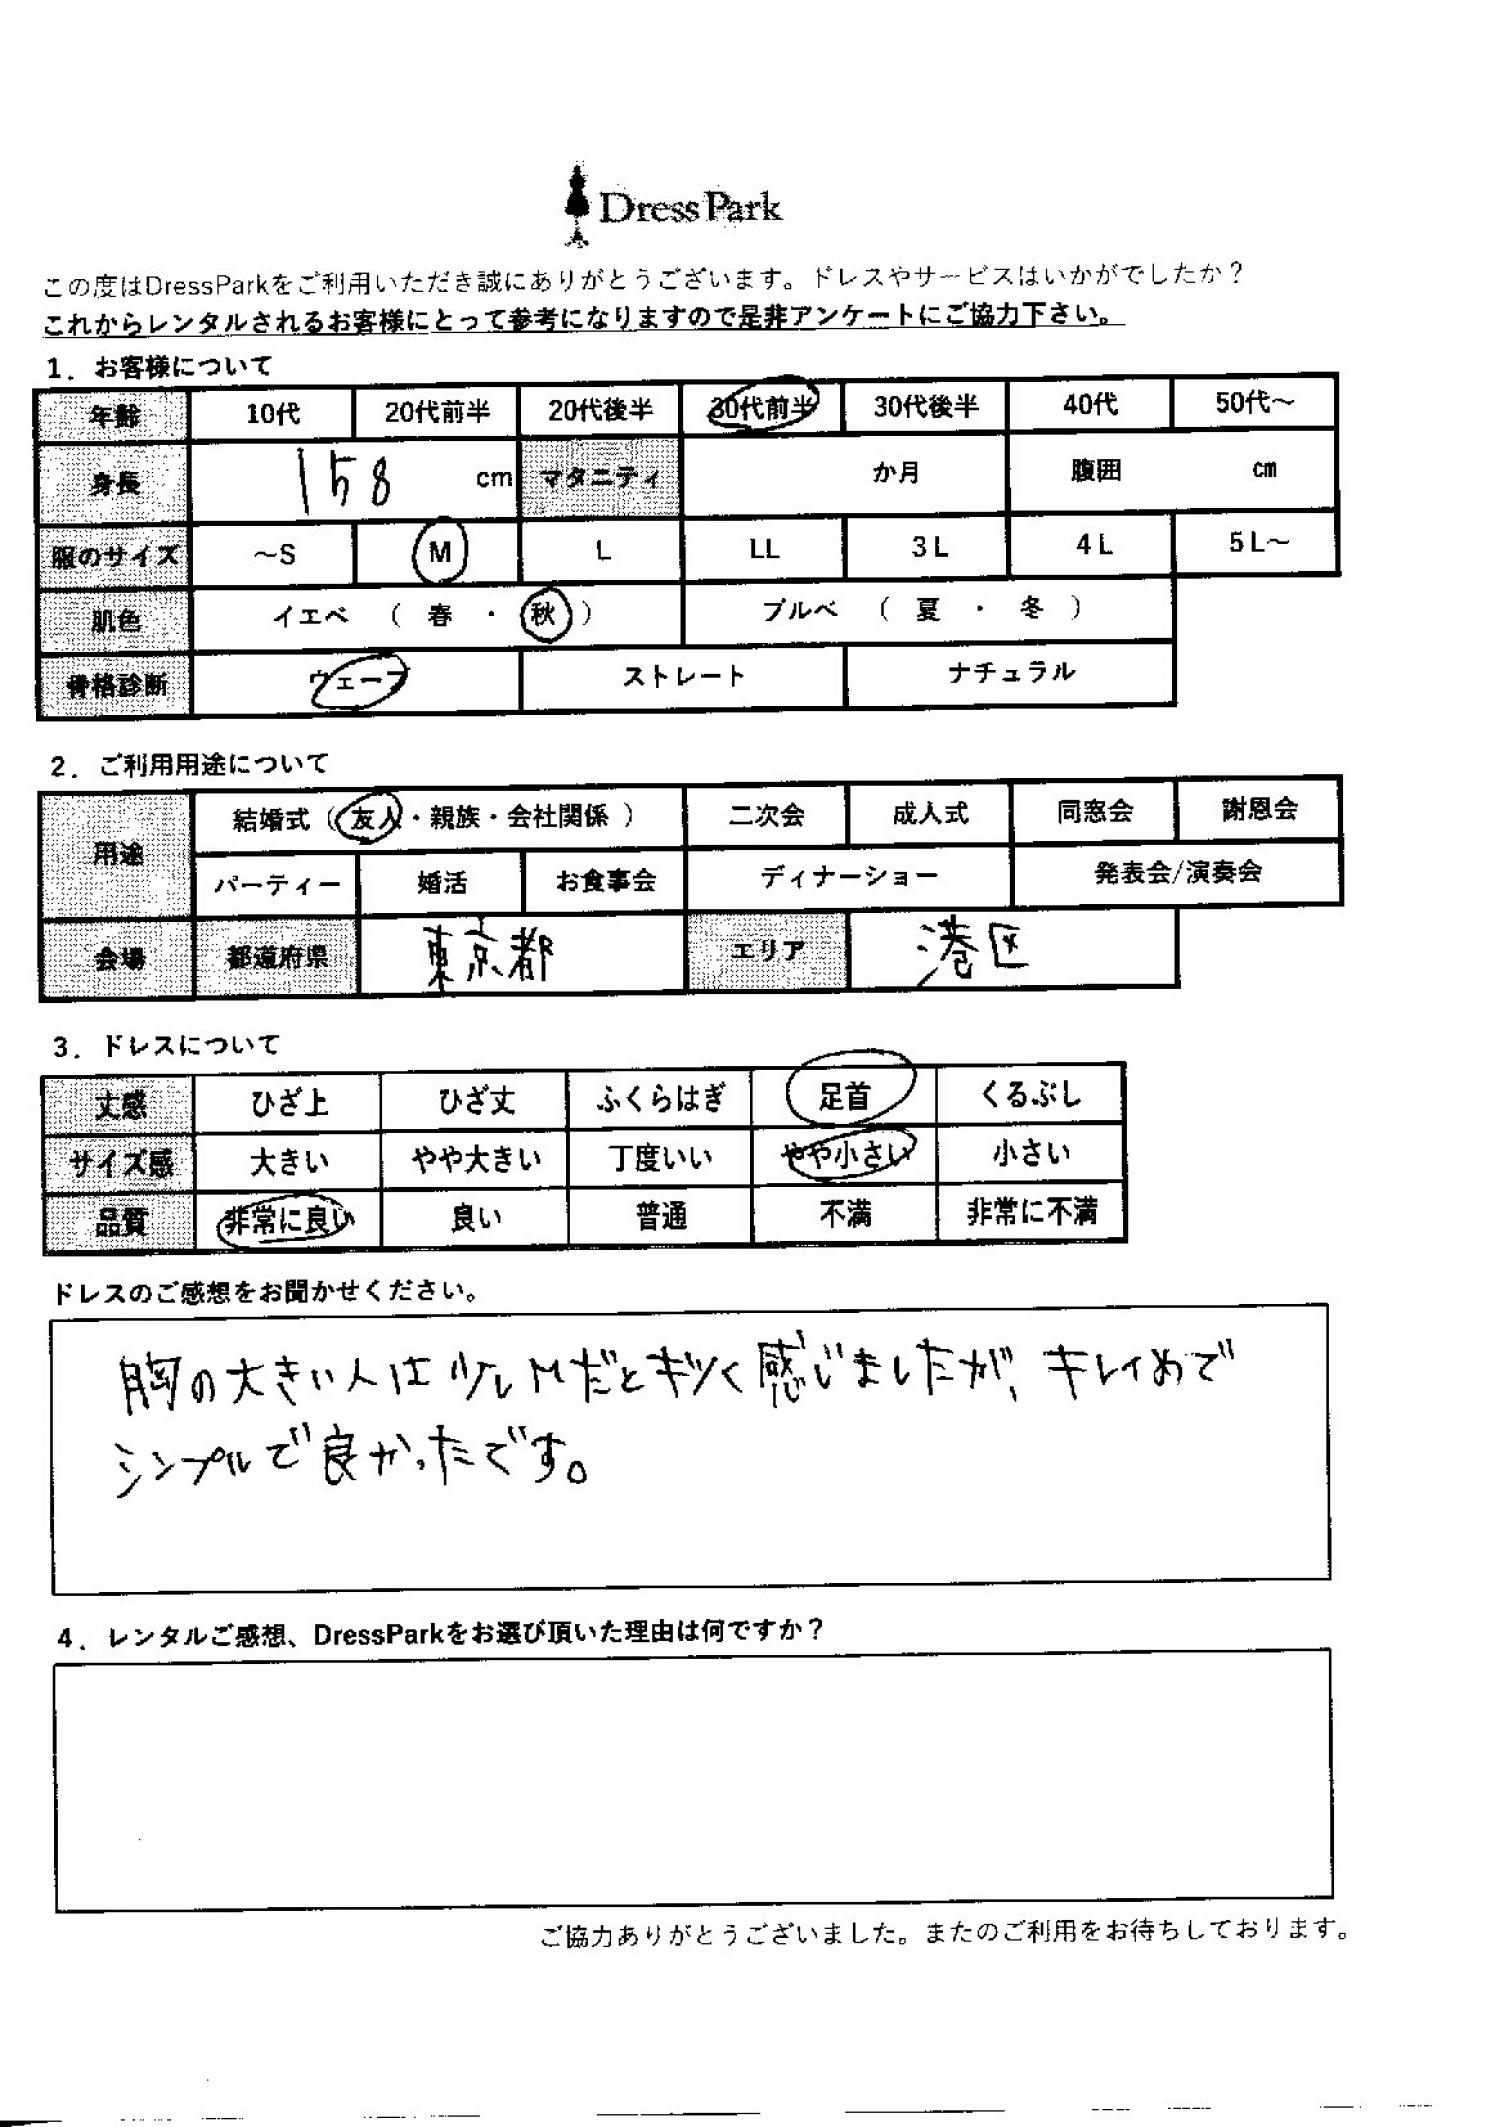 DressPark
この度はDressParkをご利用いただき誠にありがとうございます。ドレスやサービスはいかがでしたか？
これからレンタルされるお客様にとって参考になりますので是非アンケートにご協力下さい。
1．お客様について
年齢 10代 20代前半 20代後半 30代前半 30代後半 40代 50代～
身長 158 cm マタニティ か月 腹囲 cm
服のサイズ ～S M L LL 3L 4L 5L～
肌色 イエベ （ 春 ・ 秋 ） ブルベ （ 夏 ・ 冬 ）
骨格診断 ウェーブ ストレート ナチュラル
2．ご利用用途について
用途 結婚式（ 友人・親族・会社関係 ） 二次会 成人式 同窓会 謝恩会
パーティー 婚活 お食事会 ディナーショー 発表会/演奏会
会場 都道府県 東京都 エリア 港区
3．ドレスについて
丈感 ひざ上 ひざ丈 ふくらはぎ 足首 くるぶし
サイズ感 大きい やや大きい 丁度いい やや小さい 小さい
品質 非常に良い 良い 普通 不満 非常に不満
ドレスのご感想をお聞かせください。
胸の大きい人は少しMだとキツく感じましたが、キレイめで
シンプルで良かったです。
4．レンタルご感想、DressParkをお選び頂いた理由は何ですか？
ご協力ありがとうございました。またのご利用をお待ちしております。